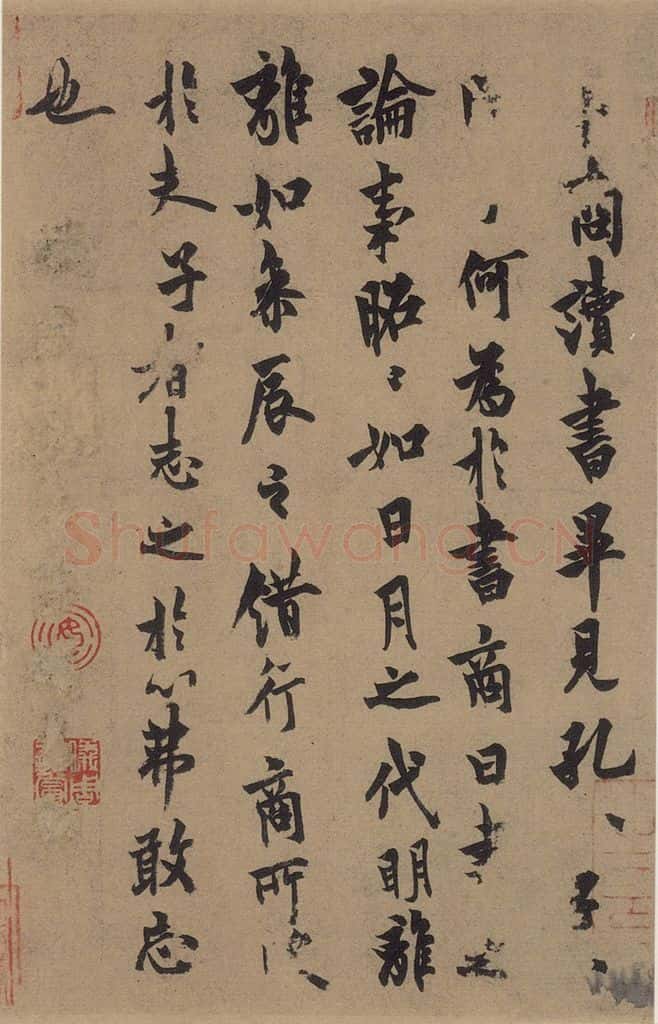 商讀書畢見孔〻子〻
何為於書商曰書之
論事昭〻如日月之代明離
離如參辰之錯行商所
於夫子者志之於心弗敢忘
也
Shufawang.CN